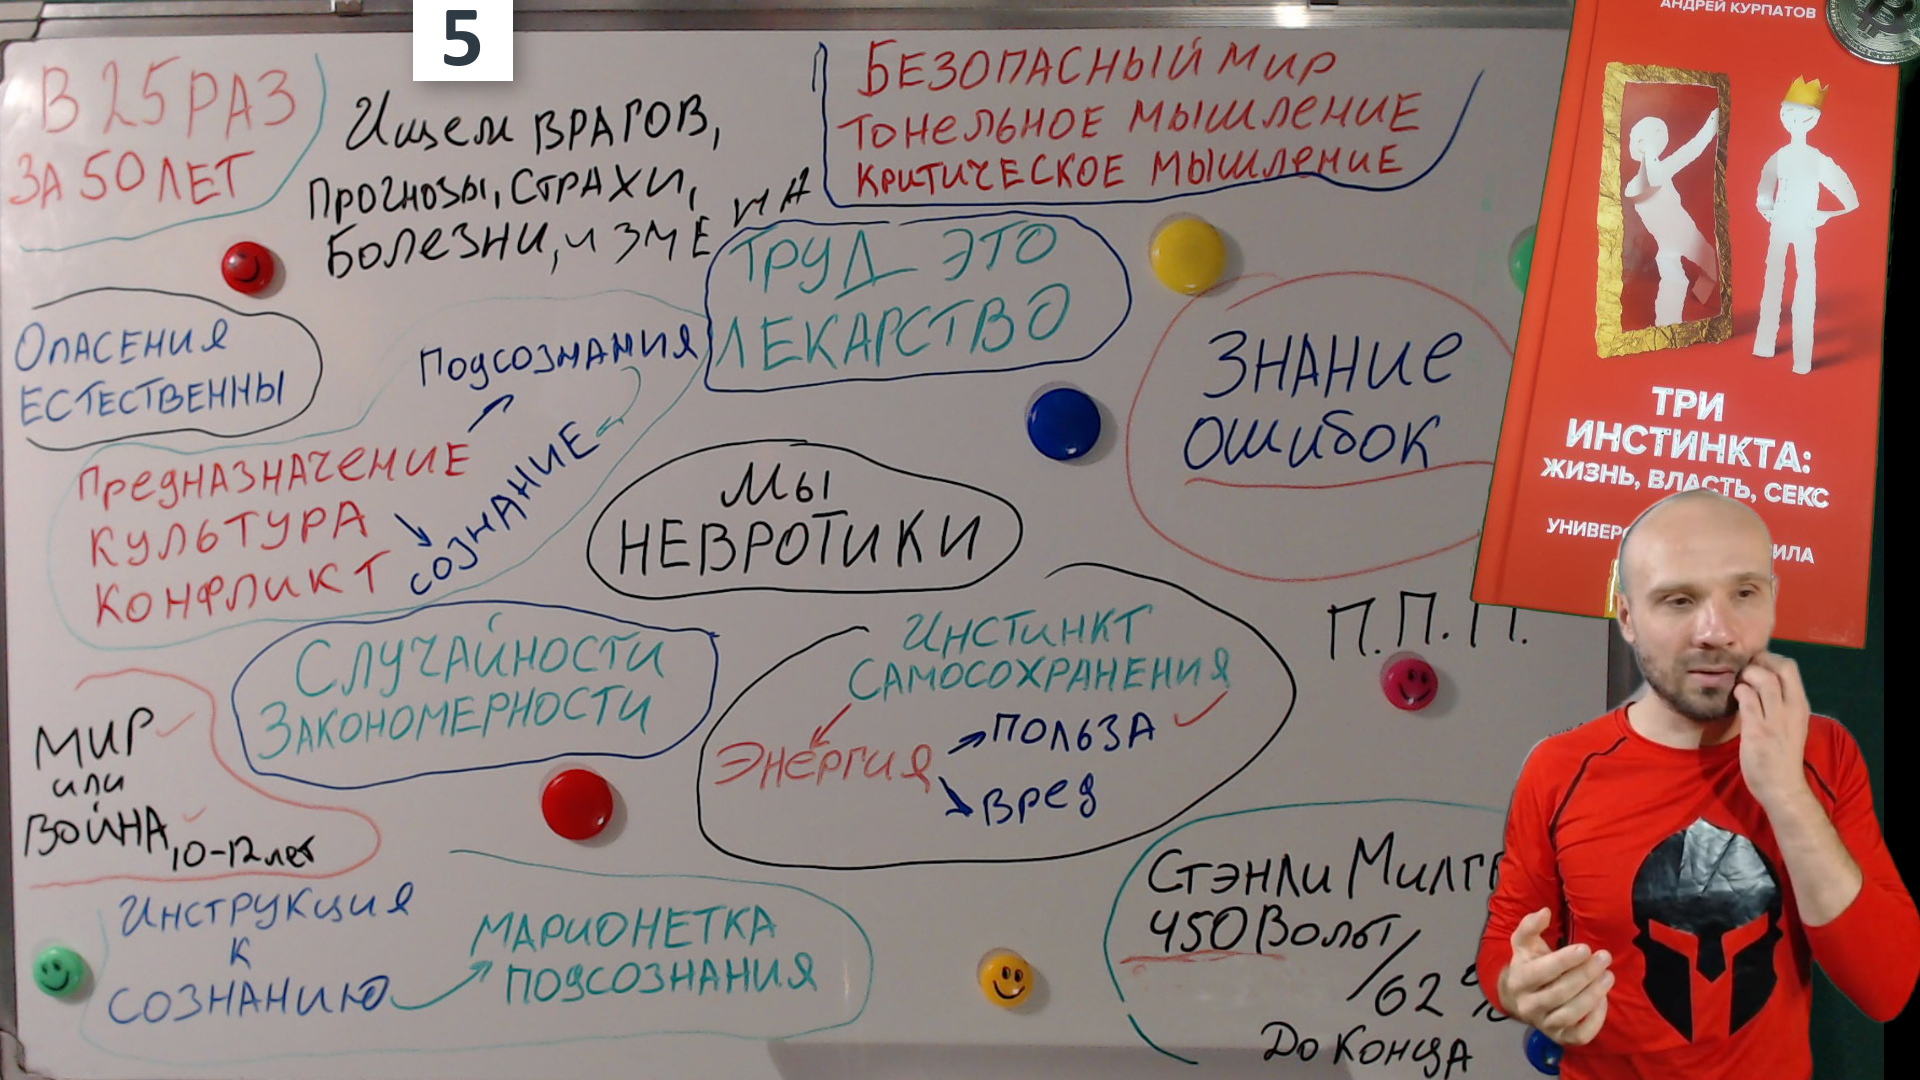 5
В 25 РАЗ
ЗА 50 ЛЕТ
Ищем ВРАГОВ,
Прогнозы, СТРАХИ,
Болезни, и ЗМЕ НА
БЕЗОПАСНЫЙ МИР
ТОНЕЛЬНОЕ МЫШЛЕНИЕ
КРИТИЧЕСКОЕ МЫШЛЕНИЕ
ТРУД ЭТО
ЛЕКАРСТВО
ОПАСЕНИЯ
ЕСТЕСТВЕННЫ
Подсознания
ПРЕДНАЗНАЧЕНИЕ
КУЛЬТУРА
КОНФЛИКТ
СОЗНАНИЕ
Мы
НЕВРОТИКИ
ЗНАНИЕ
ОШИБОК
П.П.П.
СЛУЧАЙНОСТИ
ЗАКОНОМЕРНОСТИ
ИНСТИНКТ
САМОСОХРАНЕНИЯ
ЭНЕРГИЯ
ПОЛЬЗА
ВРЕД
МИР
или
ВОЙНА, 10-12 лет
ИНСТРУКЦИЯ
К
СОЗНАНИЮ
МАРИОНЕТКА
ПОДСОЗНАНИЯ
СТЭНЛИ
450 Вольт
/62 %
До Конца
АНДРЕЙ КУРПАТОВ
ТРИ
ИНСТИНКТА:
ЖИЗНЬ, ВЛАСТЬ, СЕКС